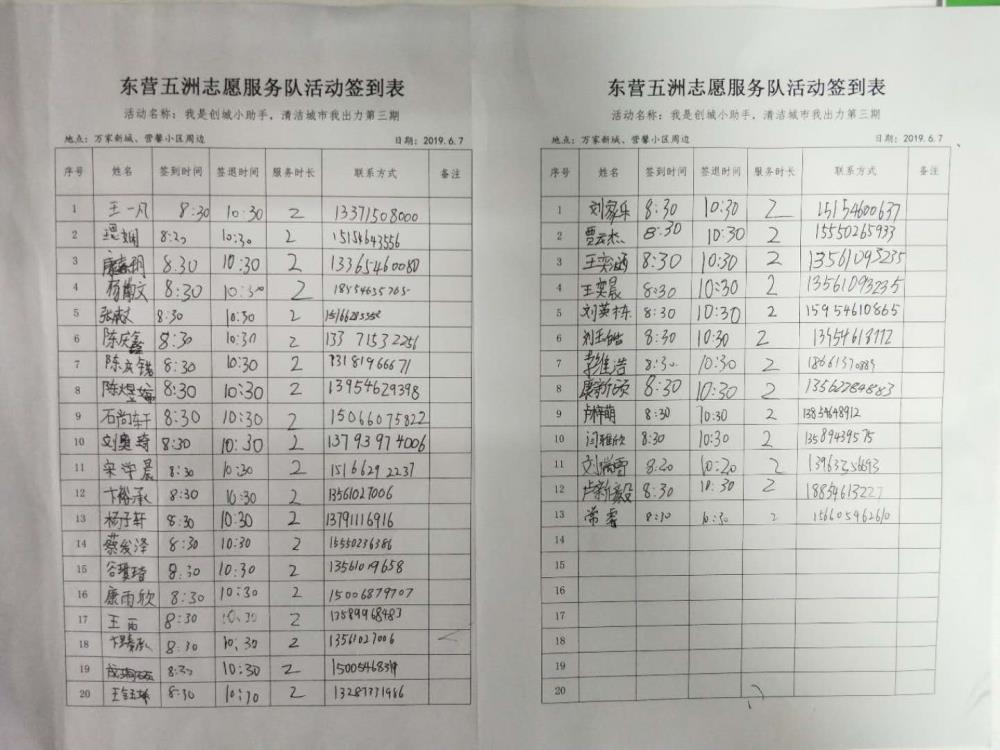 东营五洲志愿服务队活动签到表
活动名称：我是创城小助手，清洁城市我出力第三期
地点：万家新城、营馨小区周边 日期：2019.6.7
序号 姓名 签到时间 签退时间 服务时长 联系方式 备注
1 王一凡 8:30 10:30 2 13371508000
2 8:30 10:30 2 15154643556
3 8:30 10:30 2 13365460080
4 8:30 10:30 2
5 8:30 10:30 2
6 陈庆鑫 8:30 10:30 2
7 8:30 10:30 2
8 8:30 10:30 2 13954629398
9 石尚轩 8:30 10:30 2 15066075822
10 刘奥琦 8:30 10:30 2 13793974006
11 8:30 10:30 2 15166292237
12 8:30 10:30 2 13561027006
13 杨子轩 8:30 10:30 2 13791116916
14 8:30 10:30 2 15550236386
15 8:30 10:30 2
16 康雨欣 8:30 10:30 2 15006879707
17 8:30 10:30 2 13589968483
18 8:30 10:30 2 13561027006
19 8:30 10:30 2
20 8:30 10:30 2
东营五洲志愿服务队活动签到表
活动名称：我是创城小助手，清洁城市我出力第三期
地点：万家新城、营馨小区周边 日期：2019.6.7
序号 姓名 签到时间 签退时间 服务时长 联系方式 备注
1 刘家乐 8:30 10:30 2 15154600637
2 贾云杰 8:30 10:30 2 15550265933
3 王奕涵 8:30 10:30 2 13561093235
4 王奕晨 8:30 10:30 2 13561093235
5 刘英栋 8:30 10:30 2 15954610865
6 8:30 10:30 2
7 李维浩 8:30 10:30 2
8 康新硕 8:30 10:30 2 13562284883
9 8:30 10:30 2 13854648912
10 闫雅欣 8:30 10:30 2
11 刘瑞雪 8:20 10:20 2
12 8:30 10:30 2 18854613227
13 常睿 8:30 10:30 2 15660546260
14
15
16
17
18
19
20